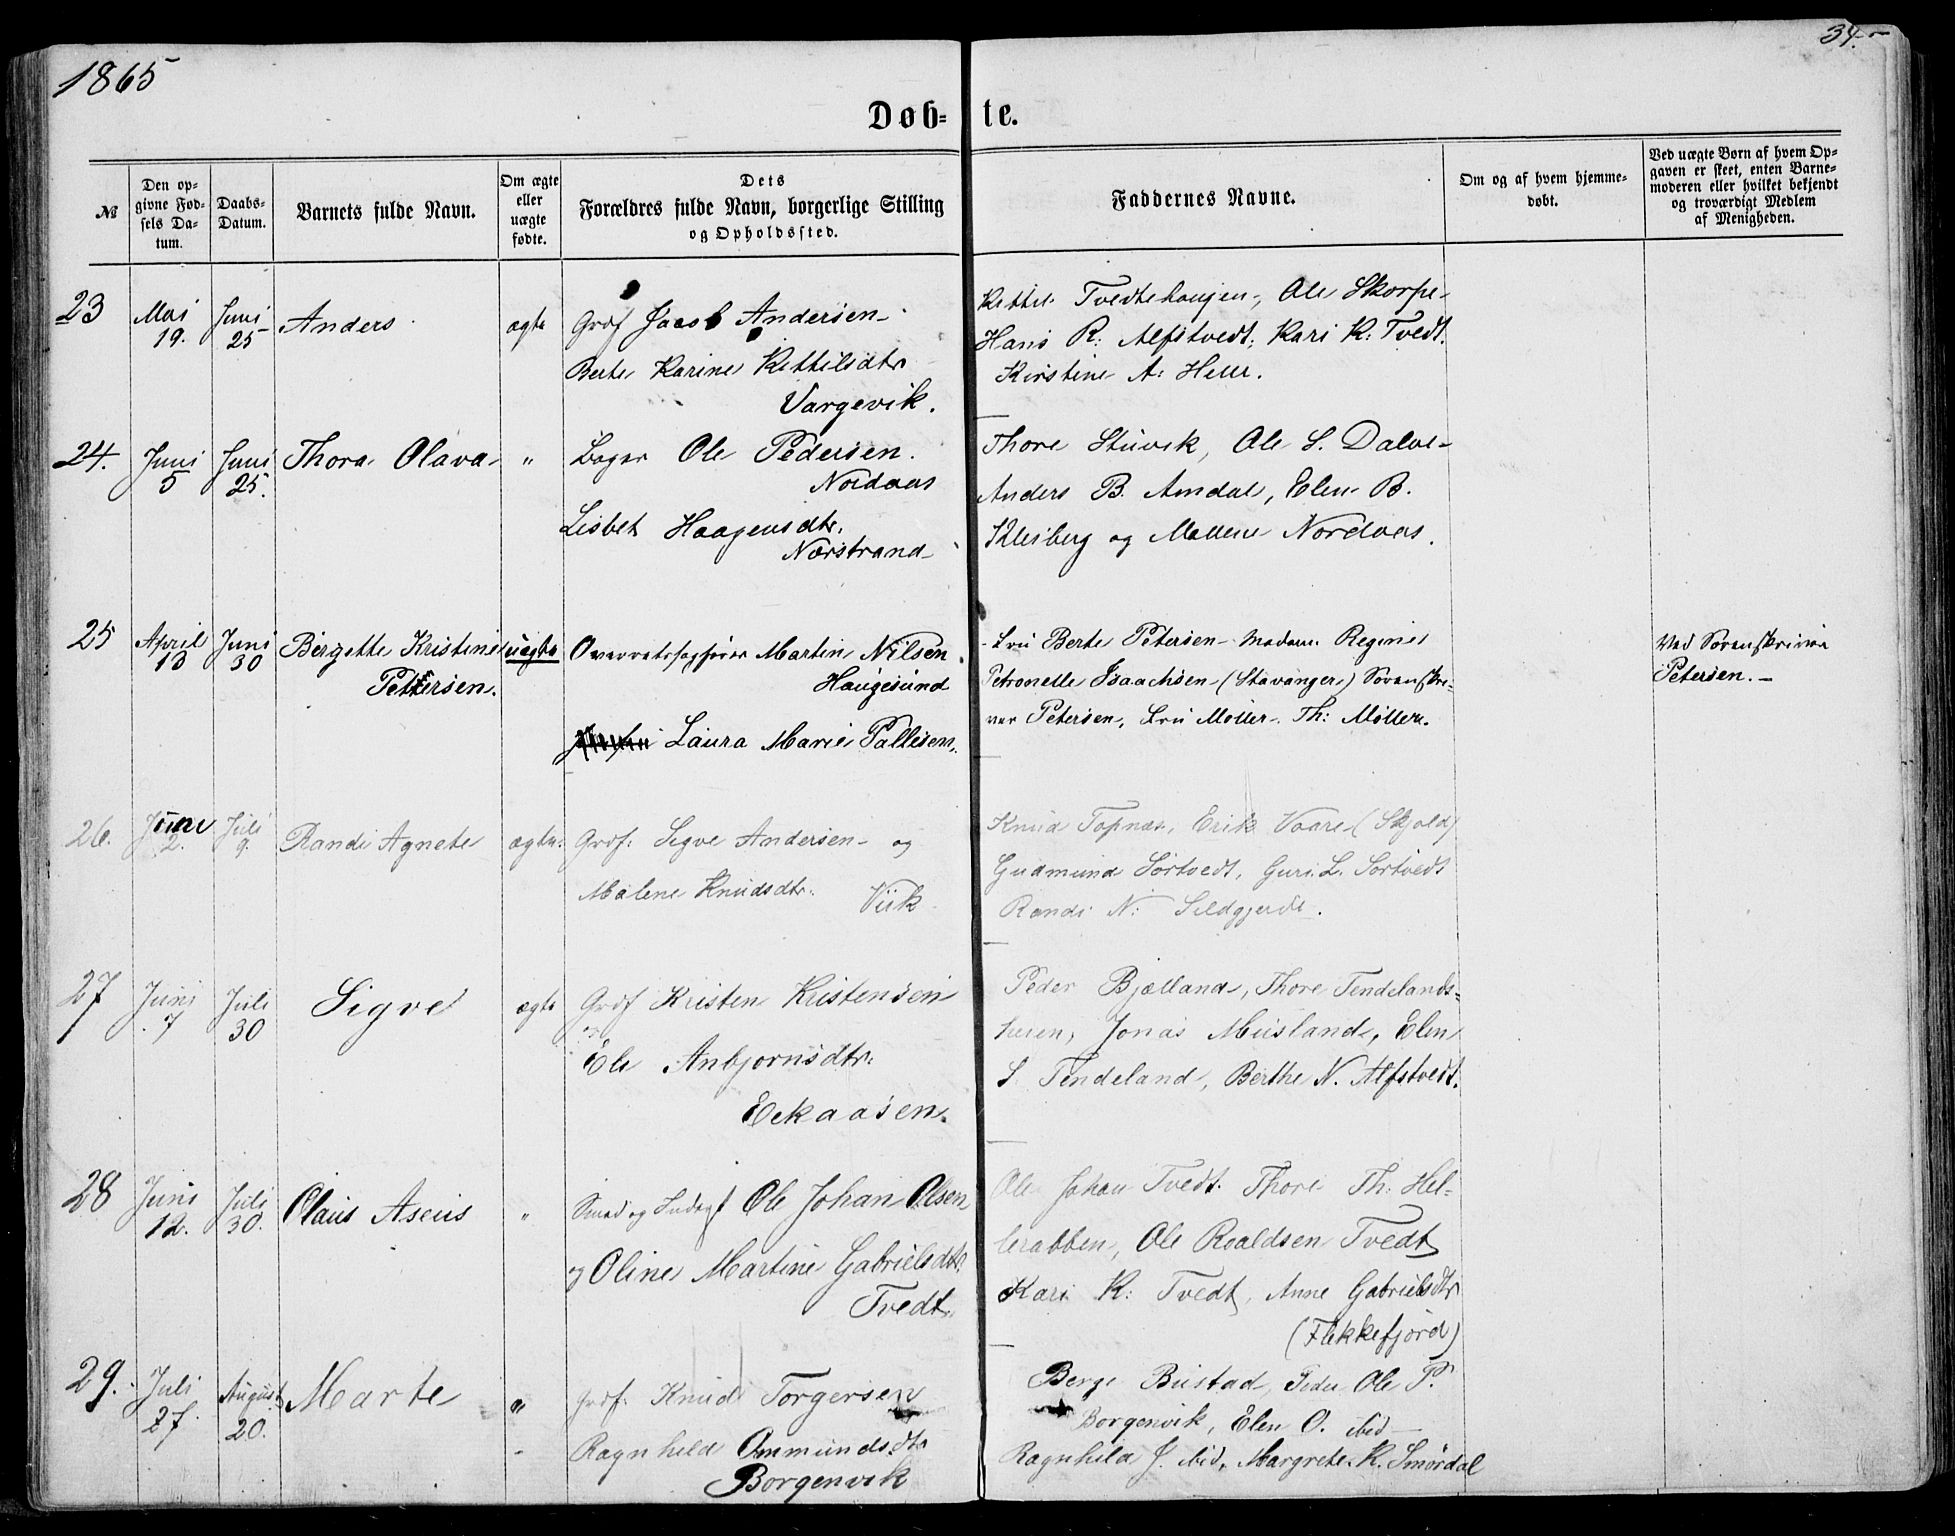 1865
34.
Døb- te.
№
Den op-
givne Fød-
sels Da-
tum.
Daabs-
Datum.
Barnets fulde Navn.
Om ægte
eller
uægte
fødte.
Dets
Forældres fulde Navn, borgerlige Stilling
og Opholdssted.
Faddernes Navne.
Om og af hvem hjemme-
døbt.
Ved uægte Børn af hvem Op-
gaven er skeet, enten Barne-
moderen eller hvilket bekjendt
og troværdigt Medlem
af Menigheden.
23
Mai
19.
Juni
25
Anders
ægte
Grdf Jacob Andersen
Berte Karine Kettilsdtr
Vargevik.
Kettil Tvedtehaugen, Ole Skorpe
Hans R: Alfstvedt, Kari K: Tvedt.
Kirstine A:
24.
Juni
5
Juni
25.
Thora Olava
"
Ole Pedersen.
Nordaas
Lisbet Haagensdtr.
Nørstrand
Thore Stuvik, Ole S. Dalve
Anders B. Amdal, Elen B.
Kleiberg og Mallene Nordaas.
25
April
13
Juni
30
Birgette Kristine
Pettersen.
uægte
Overretssagfører Martin Nilsen
Haugesund
Laura Marie Pallesen.
Fru Berte Petersen Madam Regine
Petronelle Isaachsen (Stavanger) Sorenskri-
ver Petersen, Fru Møller. Th: Møller.
Ved Sorenskriver
Petersen.
26.
Juni
2.
Juli
9.
Randi Agnete
ægte:
Grdf: Sigve Andersen og
Malene Knudsdtr.
Viik
Knud Topnæs, Erik Vaare (Skjold)
Gudmund Sørtvedt, Guri L. Sørtvedt
Randi N: Sildgjerde.
27
Juni
7
Juli
30
Sigve
ægte
Grdf Kristen Kristensen
og
Ele Anbjornsdtr.
Eekaasen.
Peder Bjelland, Thore Tendelands-
heien, Jonas Musland, Elen
S. Tendeland, Berthe N. Alfstvedt.
28
Juni
12.
Juli
30.
Olaus Aseus
"
Smed og Ole Johan Olsen
og Oline Martine Gabrielsdtr.
Tvedt.
Ole Johan Tvedt. Thore Th: Hel-
lerabben, Ole Roaldsen Tvedt
Kari K: Tvedt, Anne Gabrielsdtr
(Flekkefjord)
29.
Juli
27.
August
20.
Marte
"
Grdf. Knud Torgersen
Ragnhild Ommundsdtr
Borgenvik
Berge Bustad, Peder Ole P.
Borgenvik, Elen O. ibid
Ragnhild J. ibid, Margrete K. Smørdal